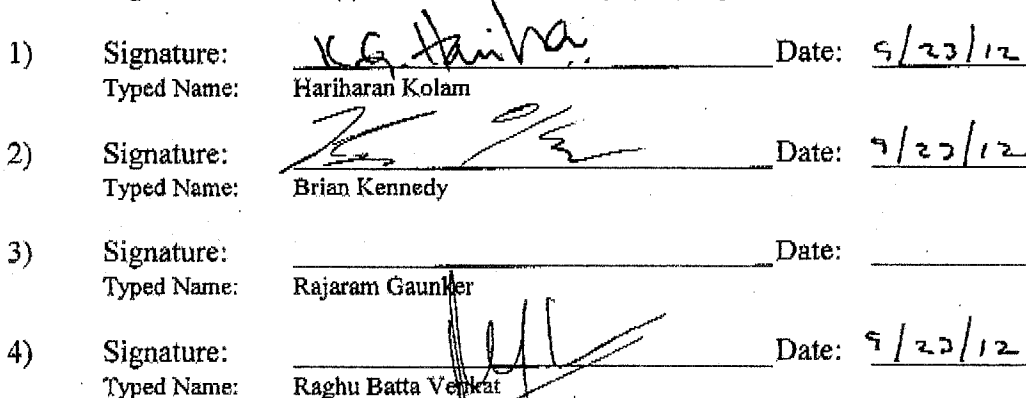 1) Signature: K.G. Hariharan Date: 9/23/12
Typed Name: Hariharan Kolam
2) Signature: Date: 9/23/12
Typed Name: Brian Kennedy
3) Signature: Date:
Typed Name: Rajaram Gaunker
4) Signature: Date: 9/23/12
Typed Name: Raghu Batta Venkat